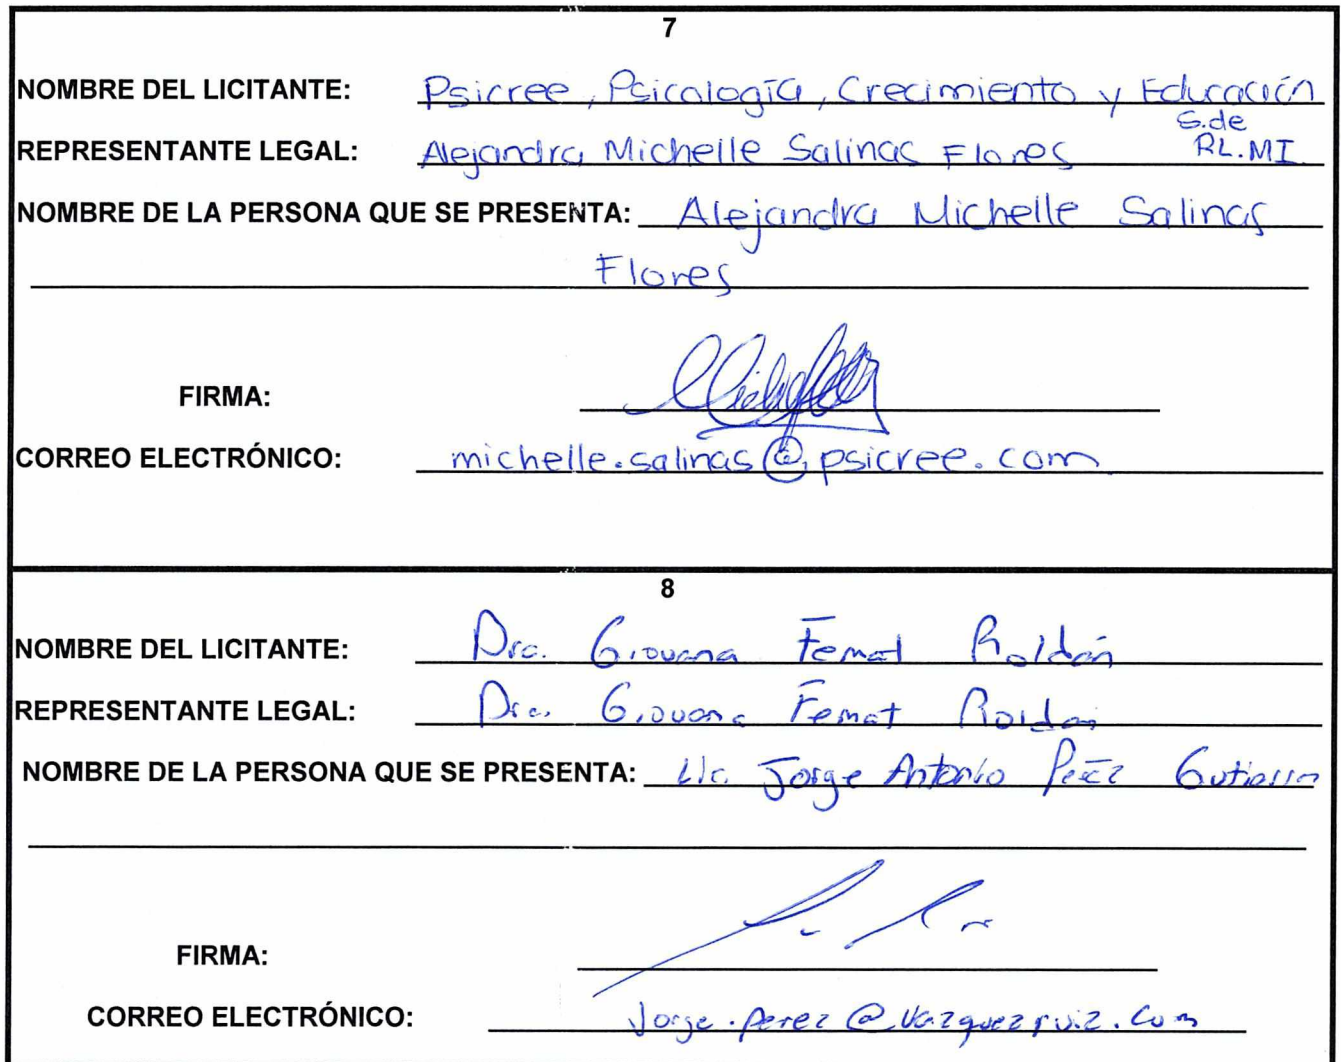 7
NOMBRE DEL LICITANTE: Psicree, Psicología, Crecimiento y Educación
S. de
REPRESENTANTE LEGAL: Alejandra Michelle Salinas Flores RL.MI.
NOMBRE DE LA PERSONA QUE SE PRESENTA: Alejandra Michelle Salinas
Flores
FIRMA:
CORREO ELECTRÓNICO: michelle.salinas@psicree.com
8
NOMBRE DEL LICITANTE: Dra. Giovana Femat Roldán
REPRESENTANTE LEGAL: Dra. Giovana Femat Roldán
NOMBRE DE LA PERSONA QUE SE PRESENTA: Lic. Jorge Antonio Peréz Gutierrez
FIRMA:
CORREO ELECTRÓNICO: Jorge.perez@vazquezruiz.com